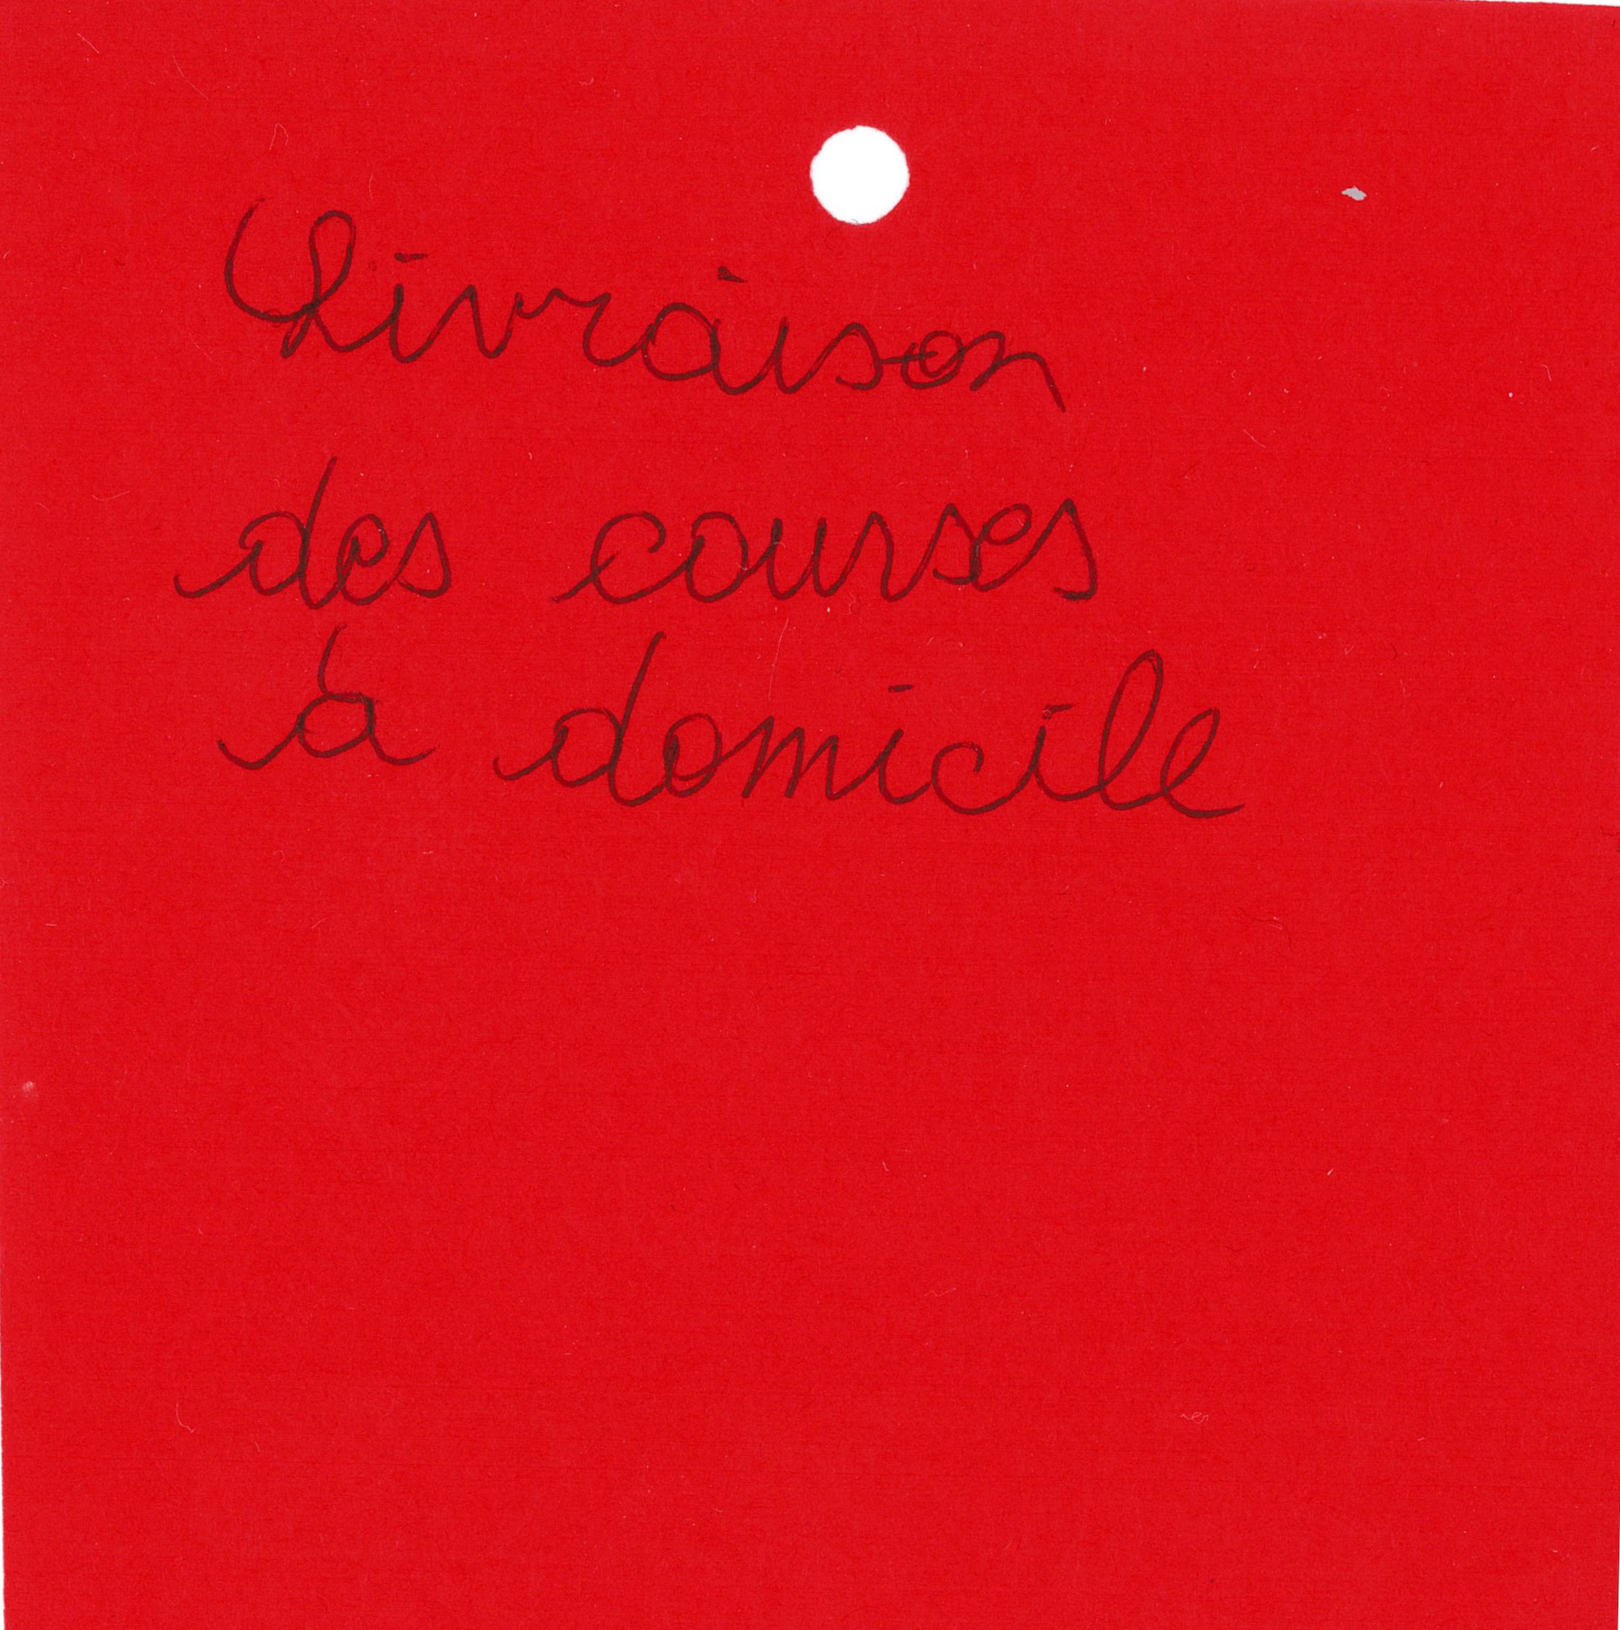 Livraison
des courses
à domicile